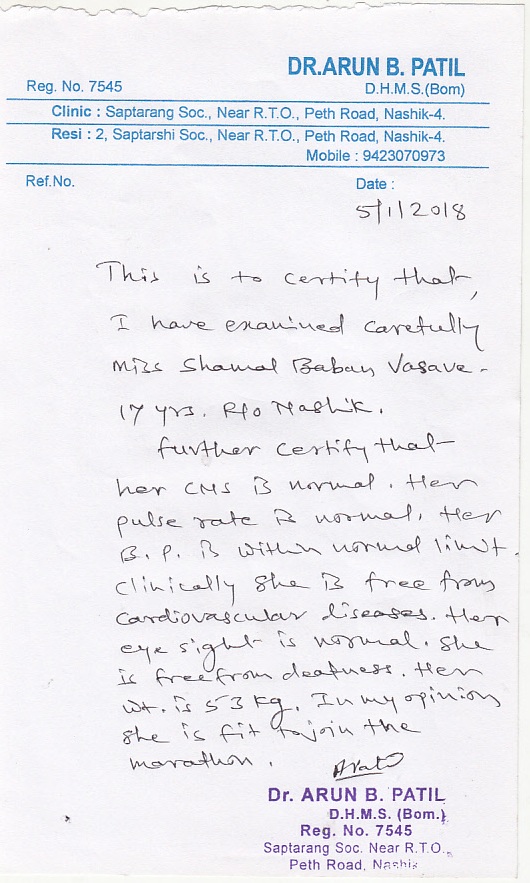 DR.ARUN B. PATIL
Reg. No. 7545 D.H.M.S.(Bom)
Clinic : Saptarang Soc., Near R.T.O., Peth Road, Nashik-4.
Resi : 2, Saptarshi Soc., Near R.T.O., Peth Road, Nashik-4.
Mobile : 9423070973
Ref.No. Date :
5/1/2018
This is to certify that,
I have examined carefully
Miss Shamal Baban Vasave -
17 yrs. R/o Nashik.
further certify that
her CNS is normal. Her
pulse rate is normal. Her
B. P. is within normal limit.
Clinically she is free from
cardiovascular diseases. Her
eye sight is normal. she
is free from deafness. Her
wt. is 53 kg. In my opinion
she is fit to join the
marathon.
Dr. ARUN B. PATIL
D.H.M.S. (Bom.)
Reg. No. 7545
Saptarang Soc. Near R.T.O.,
Peth Road, Nashik